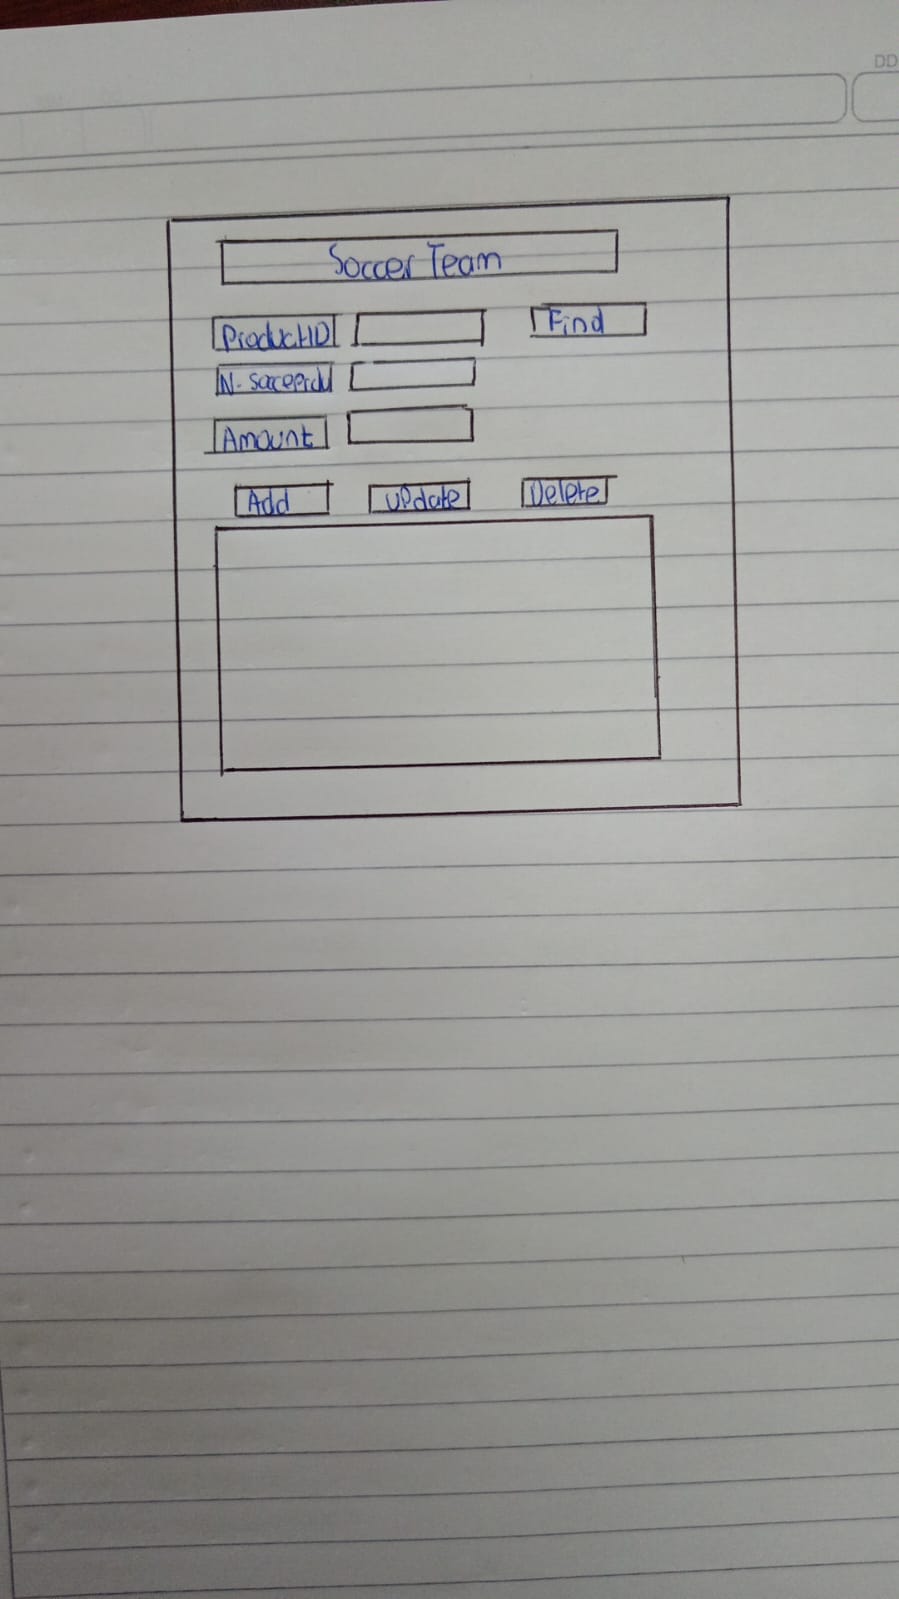 DD
Soccer Team
ProductID
Find
N.
Amount
Add
Update
Delete